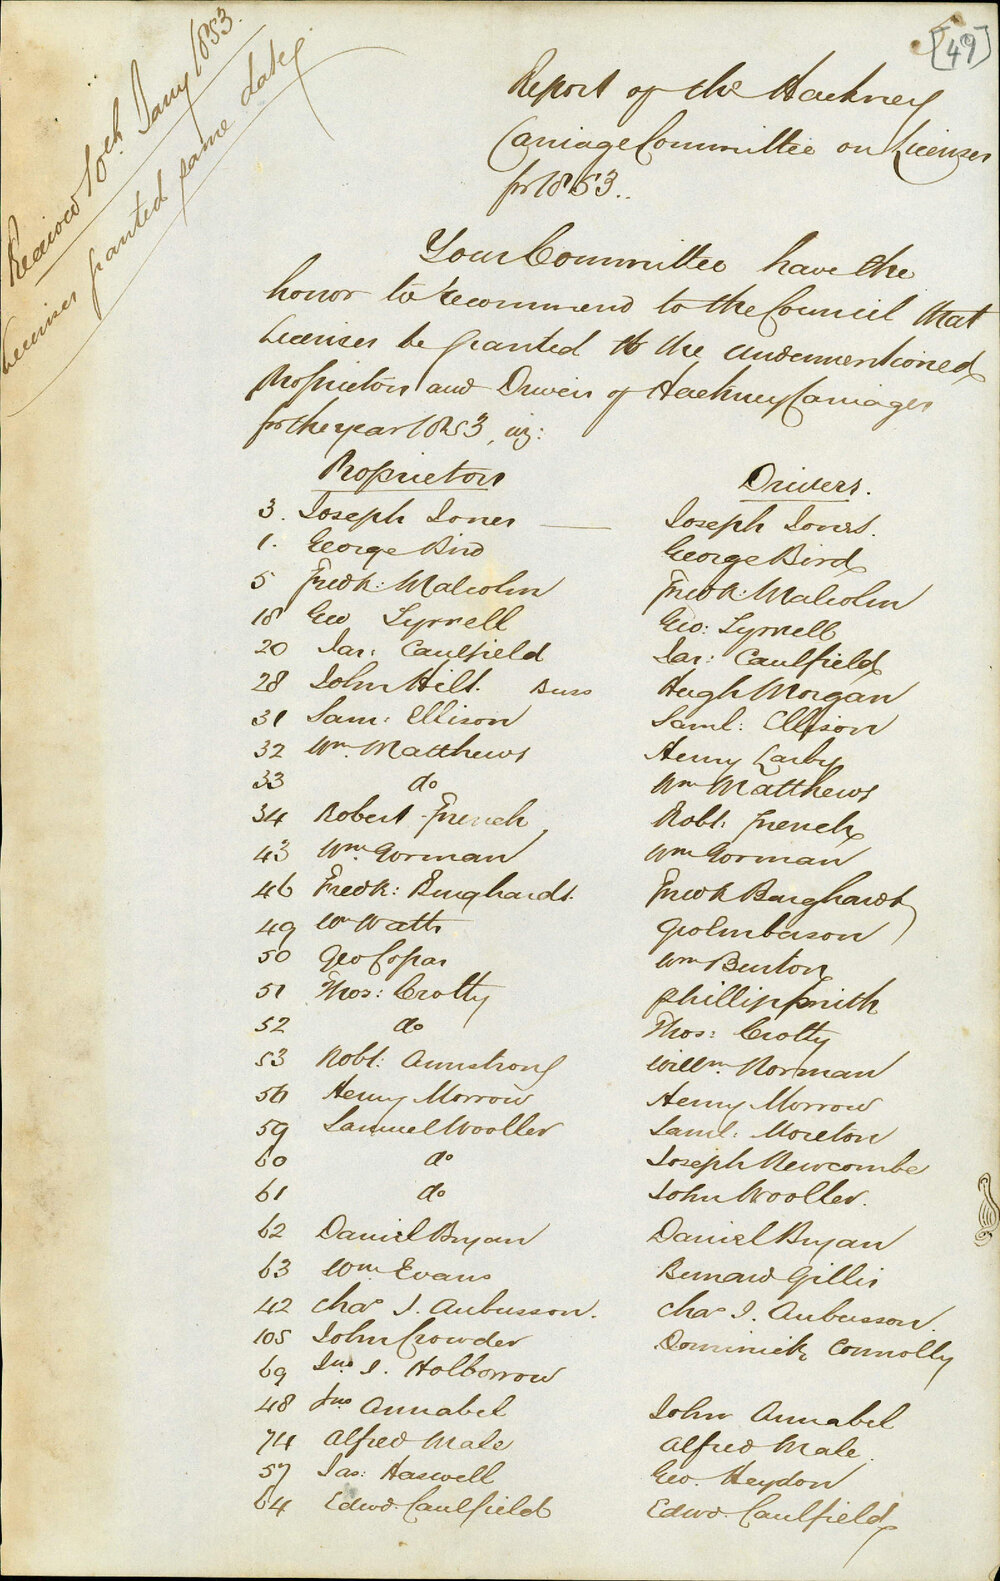 [49]
Received 10th Jany 1853.
Licenses granted same date.
Report of the Hackney
Carriage Committee on Licenses
for 1853.
Your Committee have the
honor to recommend to the Council that
Licenses be granted to the undermentioned
Proprietors and Drivers of Hackney Carriages
for the year 1853, viz:
Proprietors Drivers.
3. Joseph Jones — Joseph Jones.
1. George Bird George Bird
5 Fredk: Malcolm Fredk: Malcolm
18 Geo Tyrrell Geo: Tyrrell
20 Jas: Caulfield Jas: Caulfield
28 John Hilt. Buss Hugh Morgan
31 Sam: Ellison Saml: Ellison
32 Wm Matthews Henry Larby
33 do Wm Matthews
34 Robert French Robt: French
43 Wm Gorman Wm Gorman
46 Fredk: Burghardt. Fredk Burghardt
49 Wm Watts Geo
50 Geo Copas Wm Burton
51 Thos: Crotty Phillip Smith
52 do Thos: Crotty
53 Robt: Armstrong Willm Norman
56 Henry Morrow Henry Morrow
59 Samuel Wooller Saml: Moreton
60 do Joseph Newcombe
61 do John Wooller.
62 Daniel Bryan Daniel Bryan
63 Wm Evans Bernard Gillis
42 Chas J. Aubusson. Chas J. Aubusson.
105 John Crowder Dominick Connolly
69 Jno J. Holborrow
48 Jno Annabel John Annabel
74 Alfred Male Alfred Male.
57 Jas: Haswell Geo. Heydon
64 Edwd. Caulfield Edwd. Caulfield